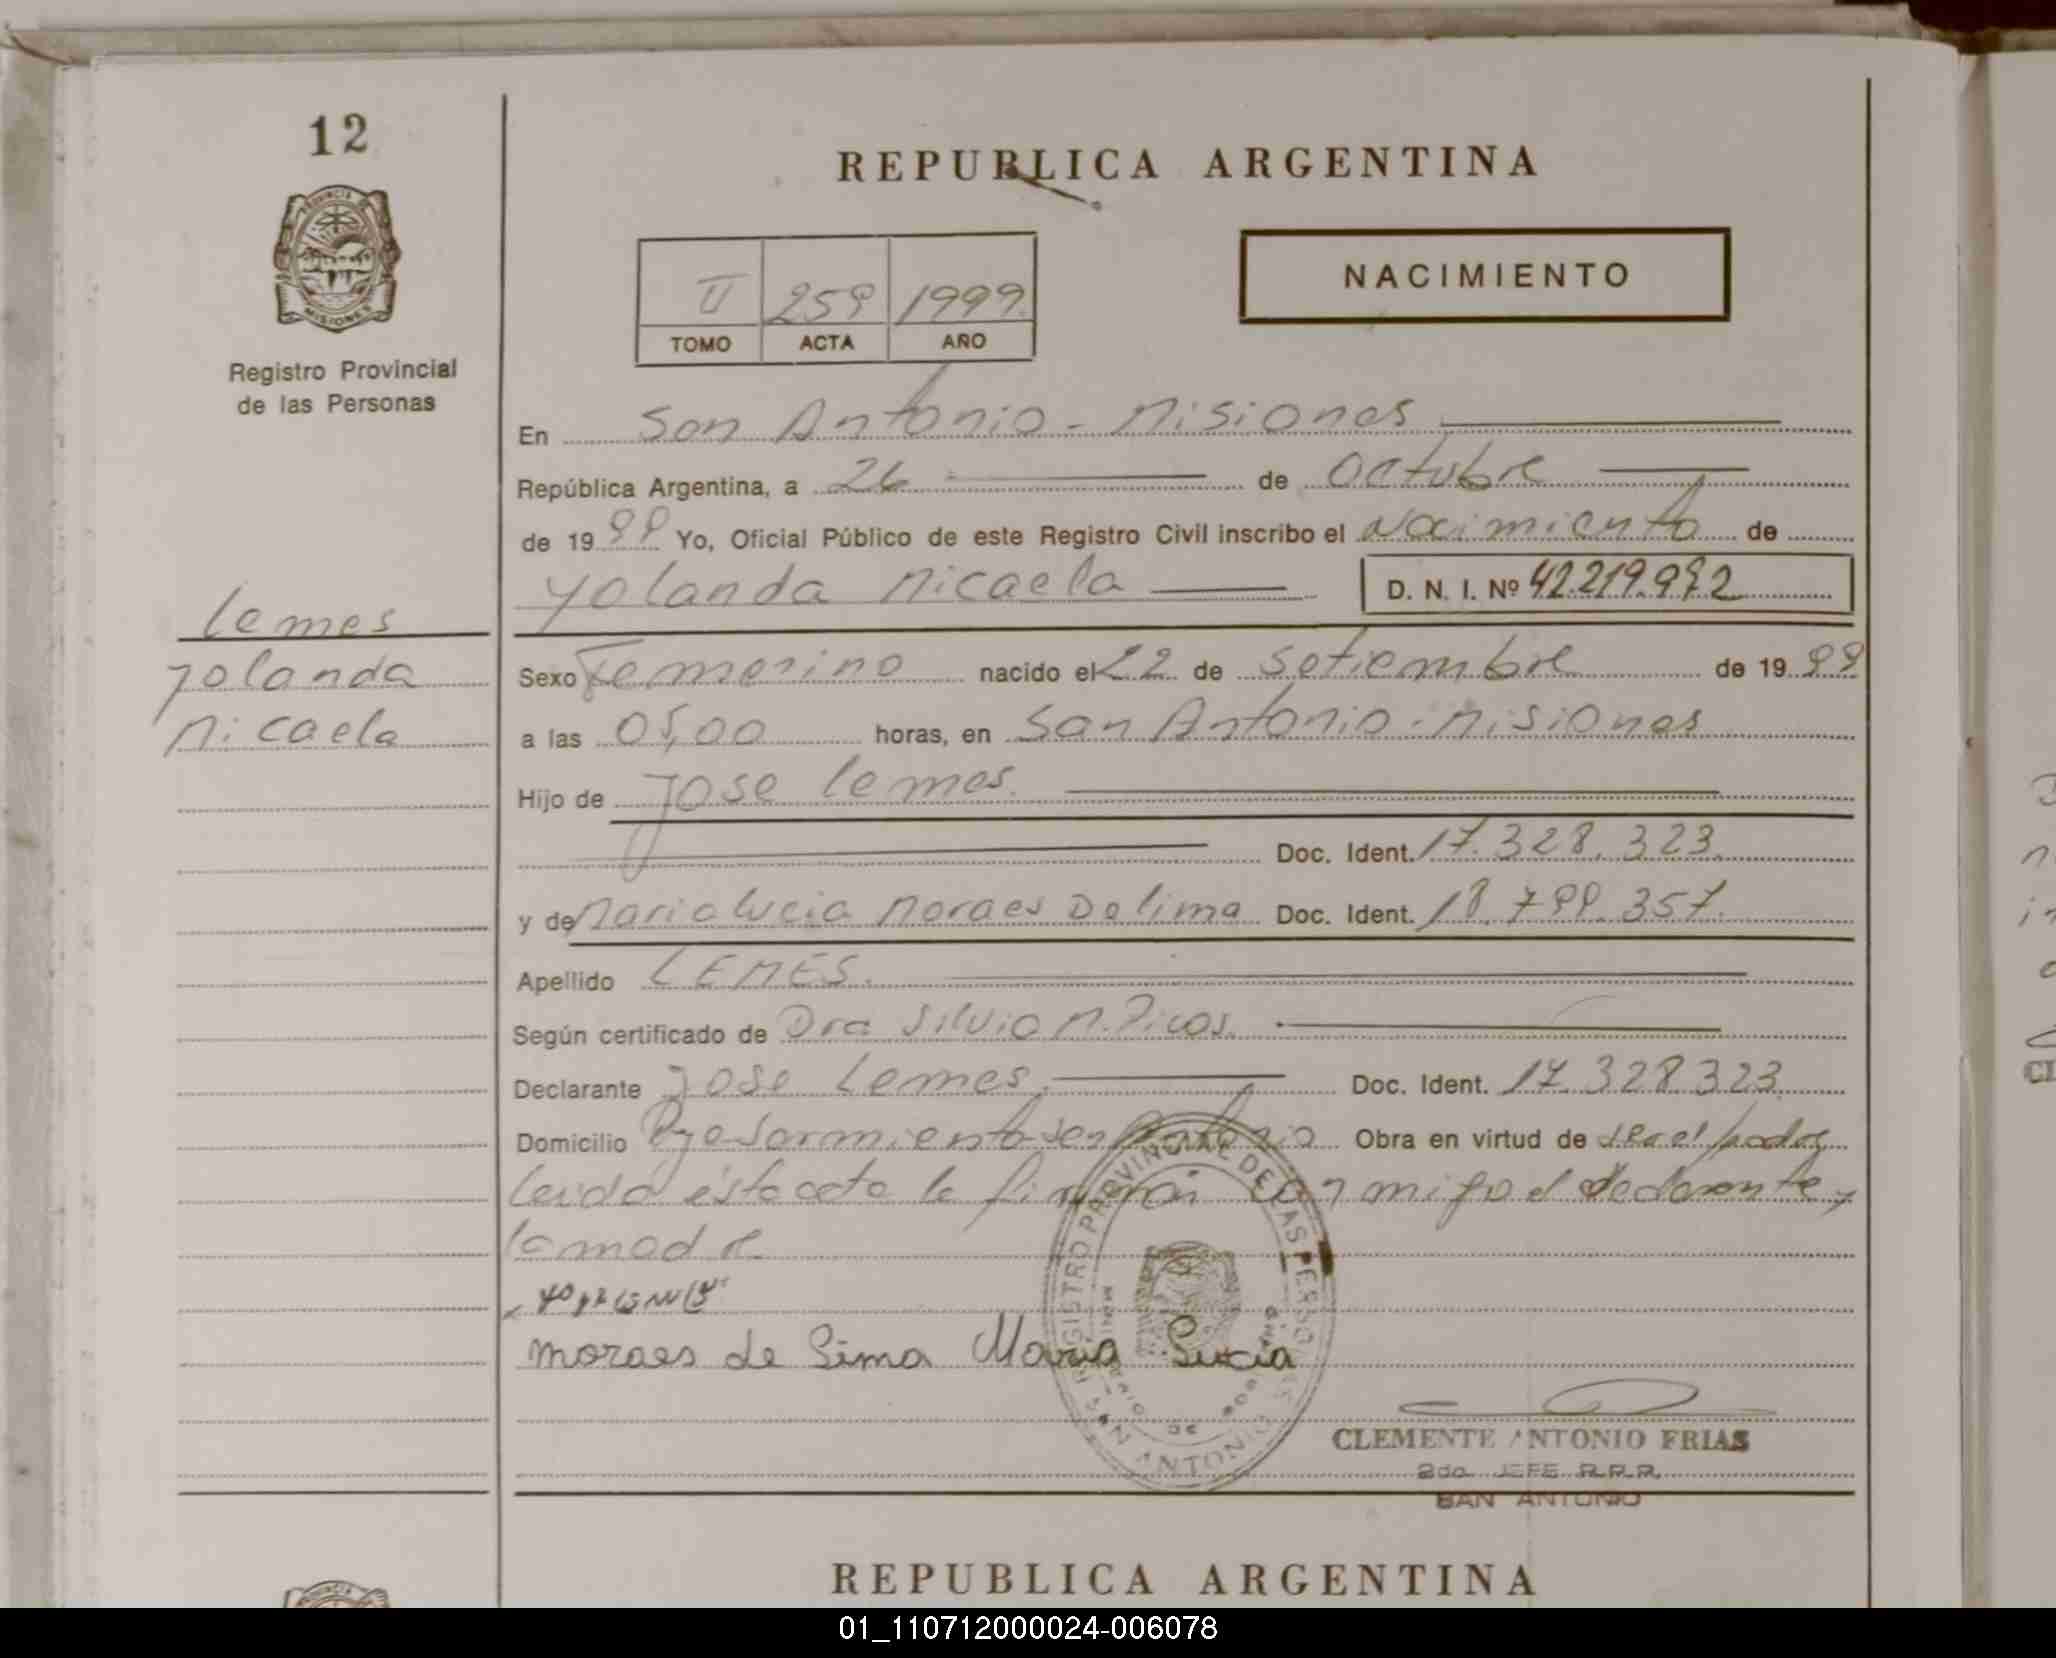 12
REPUBLICA ARGENTINA
PROVINCIA DE
MISIONES
Registro Provincial
de las Personas
II 259 1999
TOMO ACTA AÑO
NACIMIENTO
En San Antonio - Misiones
República Argentina, a 26 de Octubre
de 1999 Yo, Oficial Público de este Registro Civil inscribo el Nacimiento de
Yolanda Micaela D. N. I. Nº 42.219.972
Lemes
Yolanda
Micaela
Sexo Femenino nacido el 22 de Setiembre de 1999
a las 05,00 horas, en San Antonio - Misiones
Hijo de Jose Lemes.
Doc. Ident. 17.328.323.
y de Maria Lucia Moraes De lima Doc. Ident. 18.799.357.
Apellido LEMES.
Según certificado de Dra Silvia M. Picos.
Declarante Jose Lemes. Doc. Ident. 17.328.323
Domicilio Bº Sarmiento San Antonio Obra en virtud de ser el padre
leida ésta acta la firman con migo el declarante y
la madre
moraes de Lima Maria Lucia
REGISTRO PROVINCIAL DE LAS PERSONAS
SAN ANTONIO
CLEMENTE ANTONIO FRIAS
2do JEFE R.P.P.
SAN ANTONIO
REPUBLICA ARGENTINA
01_110712000024-006078